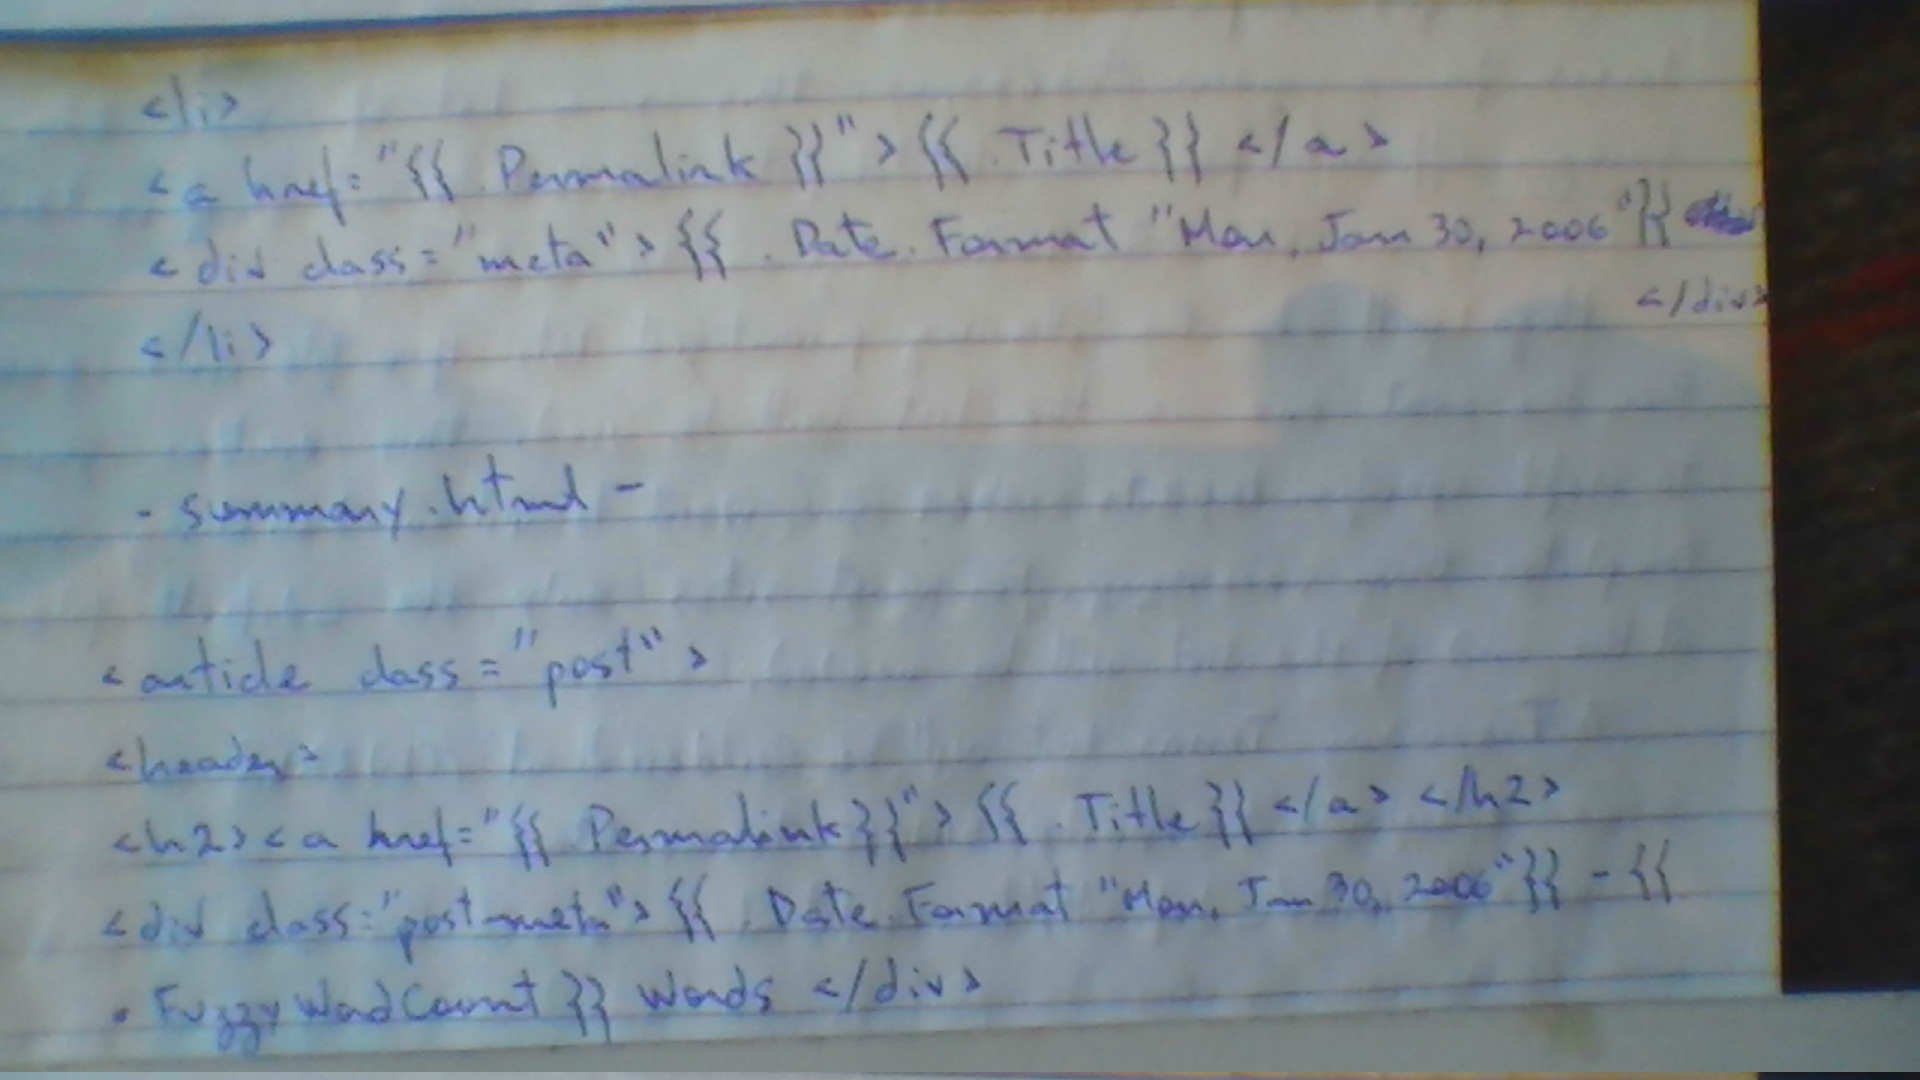 <li>
<a href="{{ .Permalink }}">{{ .Title }} </a>
<div class="meta">{{ .Date.Format "Mon, Jan 30, 2006"}}
</div>
</li>
- summary.html -
<article class="post">
<header>
<h2><a href="{{ .Permalink}}">{{ .Title}} </a> </h2>
<div class="post-meta">{{ .Date.Format "Mon, Jan 30, 2006"}} - {{
.FuzzyWordCount }} Words </div>